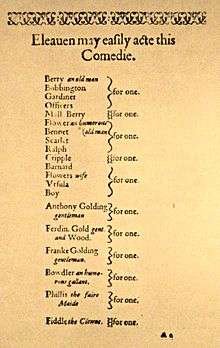 Eleauen may easily acte this
Comedie.
Berry an old man
Bobbington
Gardiner
Officers
for one.
Mall Berry
for one.
Flower an humorous
Bennet
old man
Scarlet
Ralph
for one.
Cripple
for one.
Barnard
Flowers wife
Vrsula
Boy
for one.
Anthony Golding
gentleman
for one.
Ferdin. Gold gent.
and Wood.
for one.
Franke Golding
gentleman.
for one.
Bowdler an humo-
rous galant,
for one.
Phillis the faire
Maide
for one.
Fiddle the Clowne.
for one.